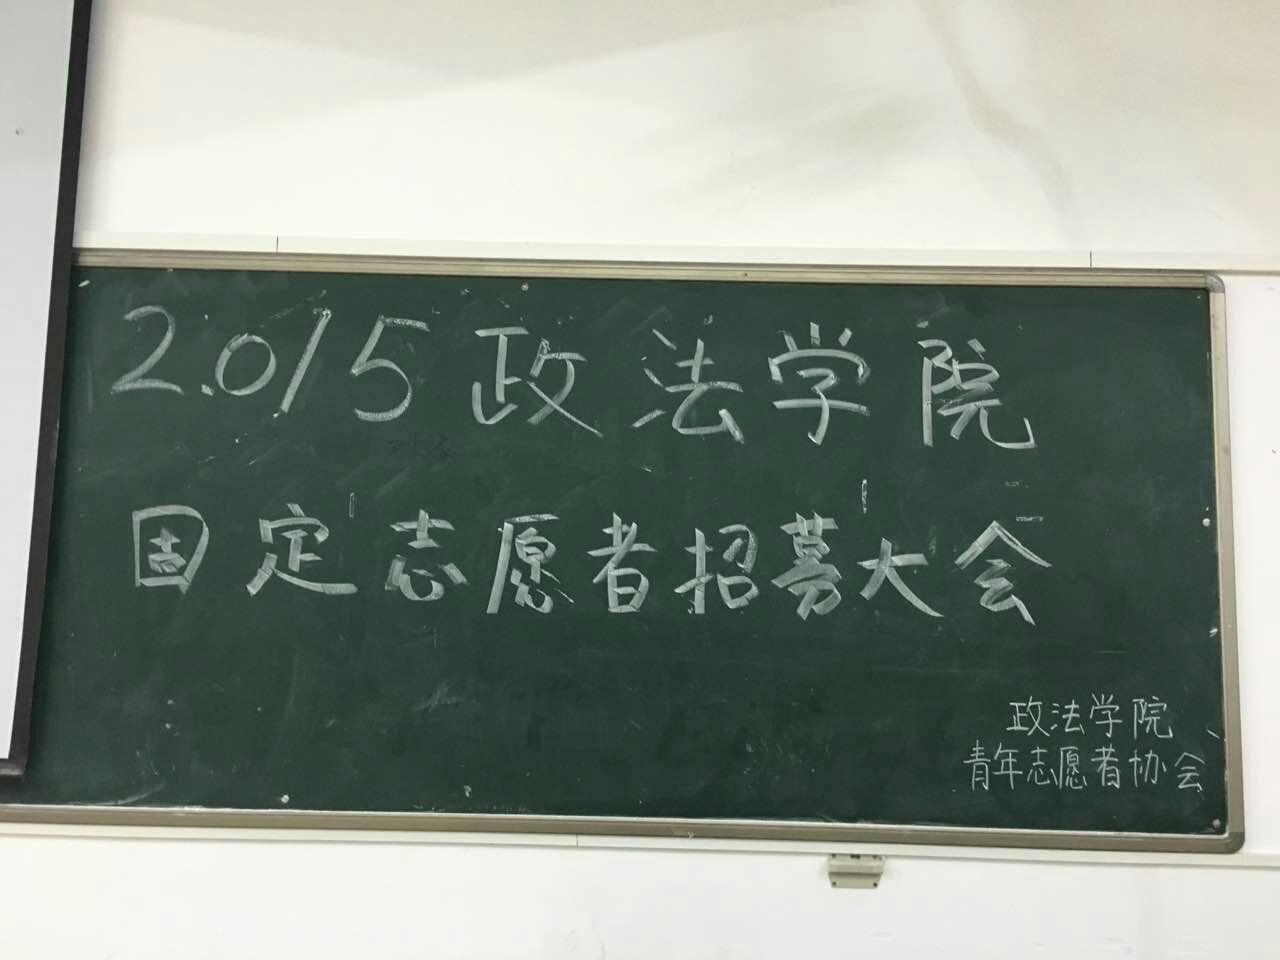 2.015政法学院
固定志愿者招募大会
政法学院
青年志愿者协会